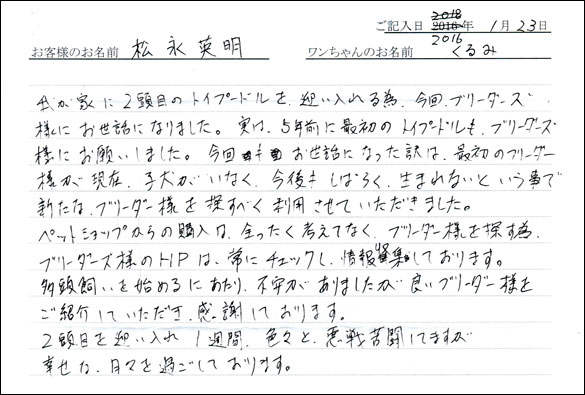 ご記入日 2018 2016年 1月23日
2016
お客様のお名前 松永英明 ワンちゃんのお名前 くるみ
我が家に2頭目のトイプードルを、迎い入れる為、今回、ブリーダーズ
様にお世話になりました。実は、5年前に最初のトイプードルも、ブリーダーズ
様にお願いしました。今回もお世話になった訳は、最初のブリーダー
様が現在、子犬がいなく、今後もしばらく、生まれないという事で
新たな、ブリーダー様を探すべく利用させていただきました。
ペットショップからの購入は、全ったく考えてなく、ブリーダー様を探す為、
ブリーダーズ様のHPは、常にチェックし、情報収集しております。
多頭飼いを始めるにあたり、不安がありましたが良いブリーダー様を
ご紹介していただき、感謝しております。
2頭目を迎い入れ1週間、色々と、悪戦苦闘してますが
幸せな、日々を過ごしております。